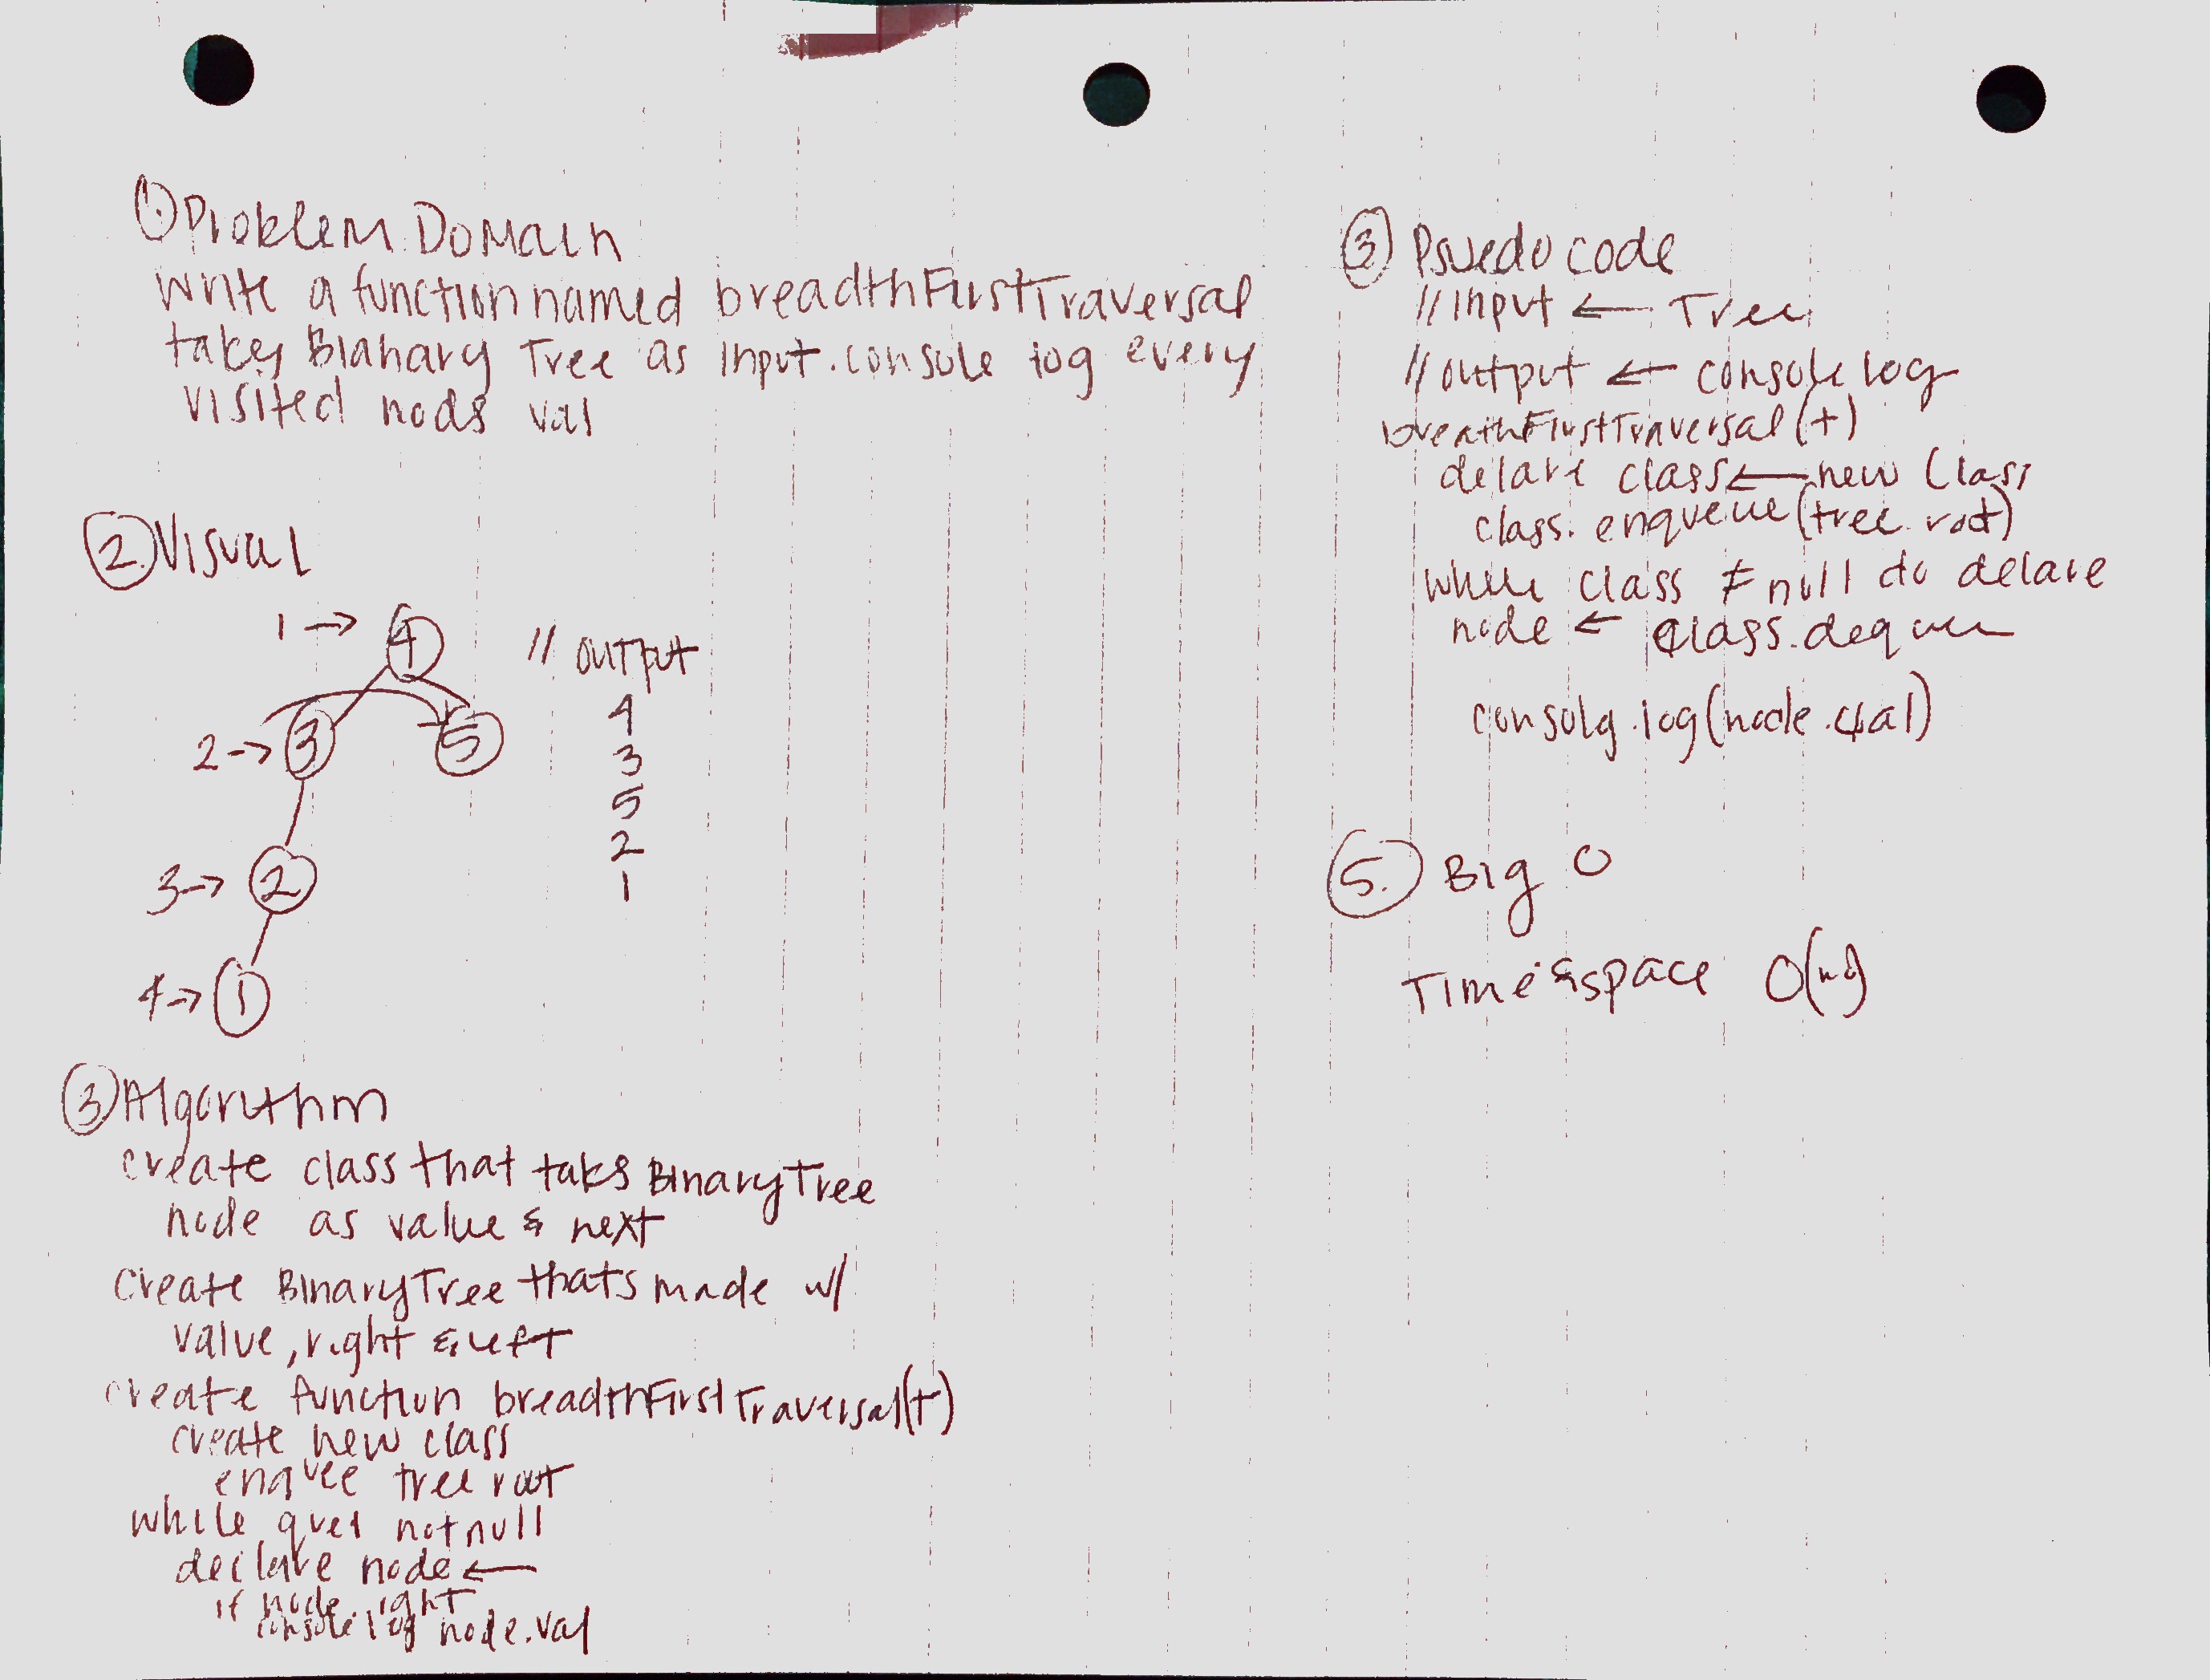 ① Problem Domain
write a function named breadthFirstTraversal
takes Bianary Tree as Input. console log every
visited nods val
②. Visual
1 → 4
2 → 3 5
3 → 2
4 → 1
// OUTPUT
4
3
5
2
1
③ Algorithm
create class that taks BinaryTree
node as value & next
create BinaryTree thats made w/
value, right & left
create function breadthFirstTraversal(t)
create new class
enquee tree root
while not null
declare node ←
if node.right
console log node.val
③ Psuedo code
// Input ← Tree
// output ← console log
breathFirstTraversal(t)
delare class ← new Class
class.enqueue(tree.root)
while class ≠ null do delare
node ← class.dequeue
console.log(node.val)
⑤. Big O
Time & space